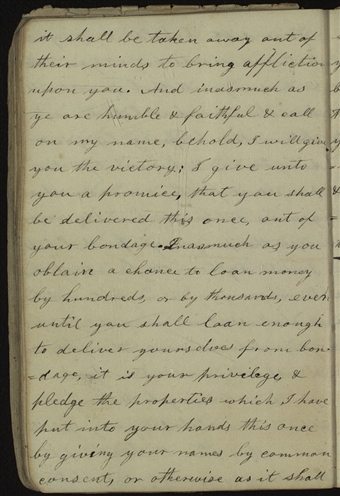 it shall be taken away out of
their minds to bring affliction
upon you. And inasmuch as
ye are humble & faithful & call
on my name, behold, I will give
you the victory; I give unto
you a promice, that you shall
be delivered this once, out of
your bondage. Inasmuch as you
obtain a chance to loan money
by hundreds, or by thousands, even
until you shall loan enough
to deliver yourselves from bon-
=dage, it is your privilege, &
pledge the properties which I have
put into your hands this once
by giving your names by common
consent, or otherwise as it shall